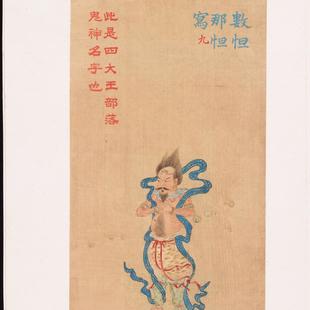 數怛
那怛
寫
九
此是四大王部落
鬼神名字也